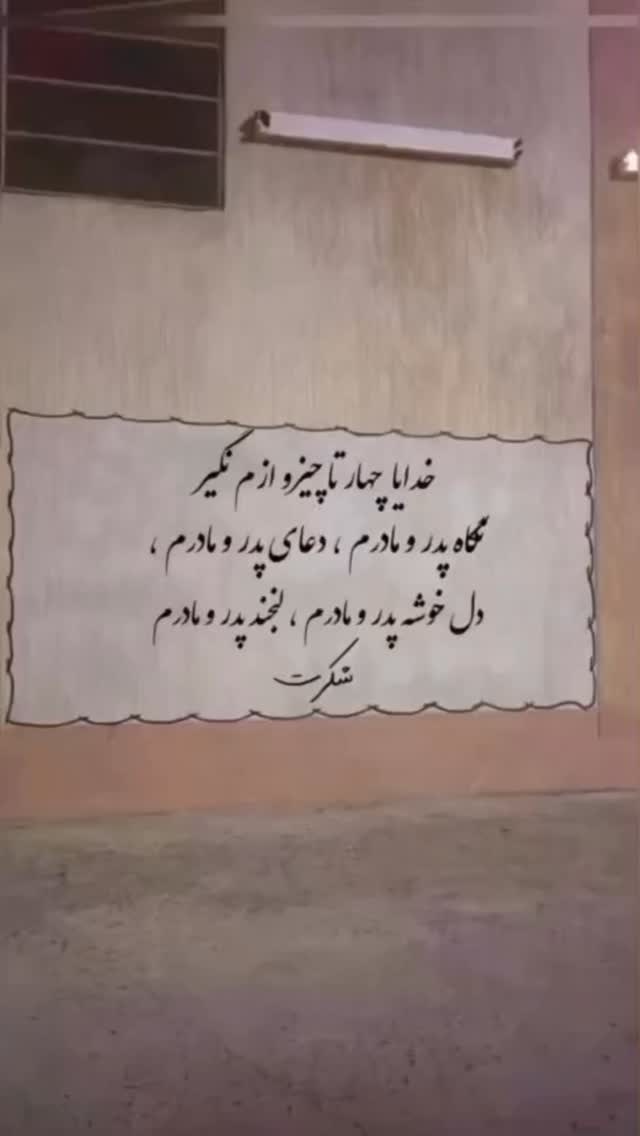 خدایا چهار تا چیزو ازم نگیر
نگاه پدر و مادرم ، دعای پدر و مادرم ،
دل خوشه پدر و مادرم ، لبخند پدر و مادرم
شکرت